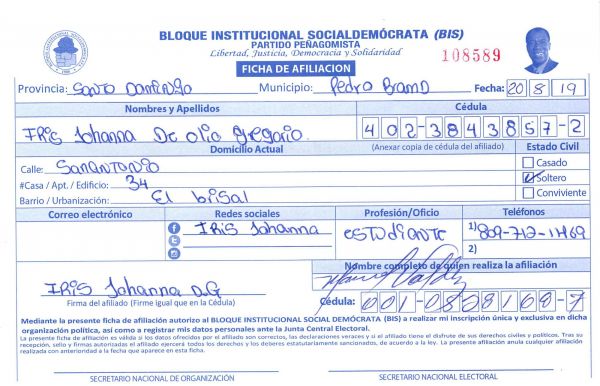 BLOQUE INSTITUCIONAL SOCIALDEMÓCRATA (BIS)
PARTIDO PEÑAGOMISTA
Libertad, Justicia, Democracia y Solidaridad
108589
FICHA DE AFILIACION
Provincia: Santo Domingo Municipio: Pedro Brand Fecha: 20 8 19
Nombres y Apellidos Cédula
IRis Johanna De olio gregorio 402-3843857-2
Domicilio Actual (Anexar copia de cédula del afiliado) Estado Civil
Calle: SanAntonio Casado
#Casa / Apt. / Edificio: 34 Soltero
Barrio / Urbanización: El brisal Conviviente
Correo electrónico Redes sociales Profesión/Oficio Teléfonos
IRis Johanna estudiante 1) 809-712-1469
2)
Nombre completo de quien realiza la afiliación
IRis Johanna D.G
Firma del afiliado (Firme igual que en la Cédula) Cédula: 001-0828168-7
Mediante la presente ficha de afiliación autorizo al BLOQUE INSTITUCIONAL SOCIAL DEMÓCRATA (BIS) a realizar mi inscripción única y exclusiva en dicha
organización política, así como a registrar mis datos personales ante la Junta Central Electoral.
La presente ficha de afiliación es válida si los datos ofrecidos por el afiliado son correctos, las declaraciones veraces y si el afiliado tiene el disfrute de sus derechos civiles y políticos. Tras su
recepción, sello y firmas autorizadas el afiliado ejercerá todos los derechos y los deberes estatutariamente sancionados, de acuerdo a la ley. La presente afiliación anula cualquier afiliación
realizada con anterioridad a la fecha que aparece en esta ficha.
SECRETARIO NACIONAL DE ORGANIZACIÓN SECRETARIO NACIONAL ELECTORAL